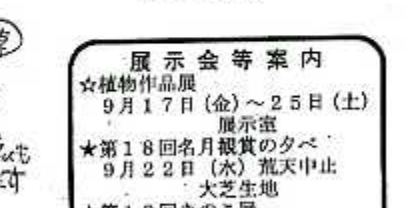 展示会等案内
☆植物作品展
9月17日(金)～25日(土)
展示室
★第18回名月観賞の夕べ
9月22日(水) 荒天中止
大芝生地